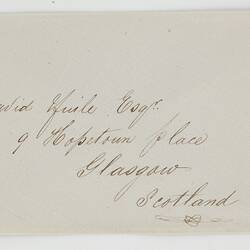 avid Yuile Esqr.
9 Hopetoun place
Glasgow
Scotland